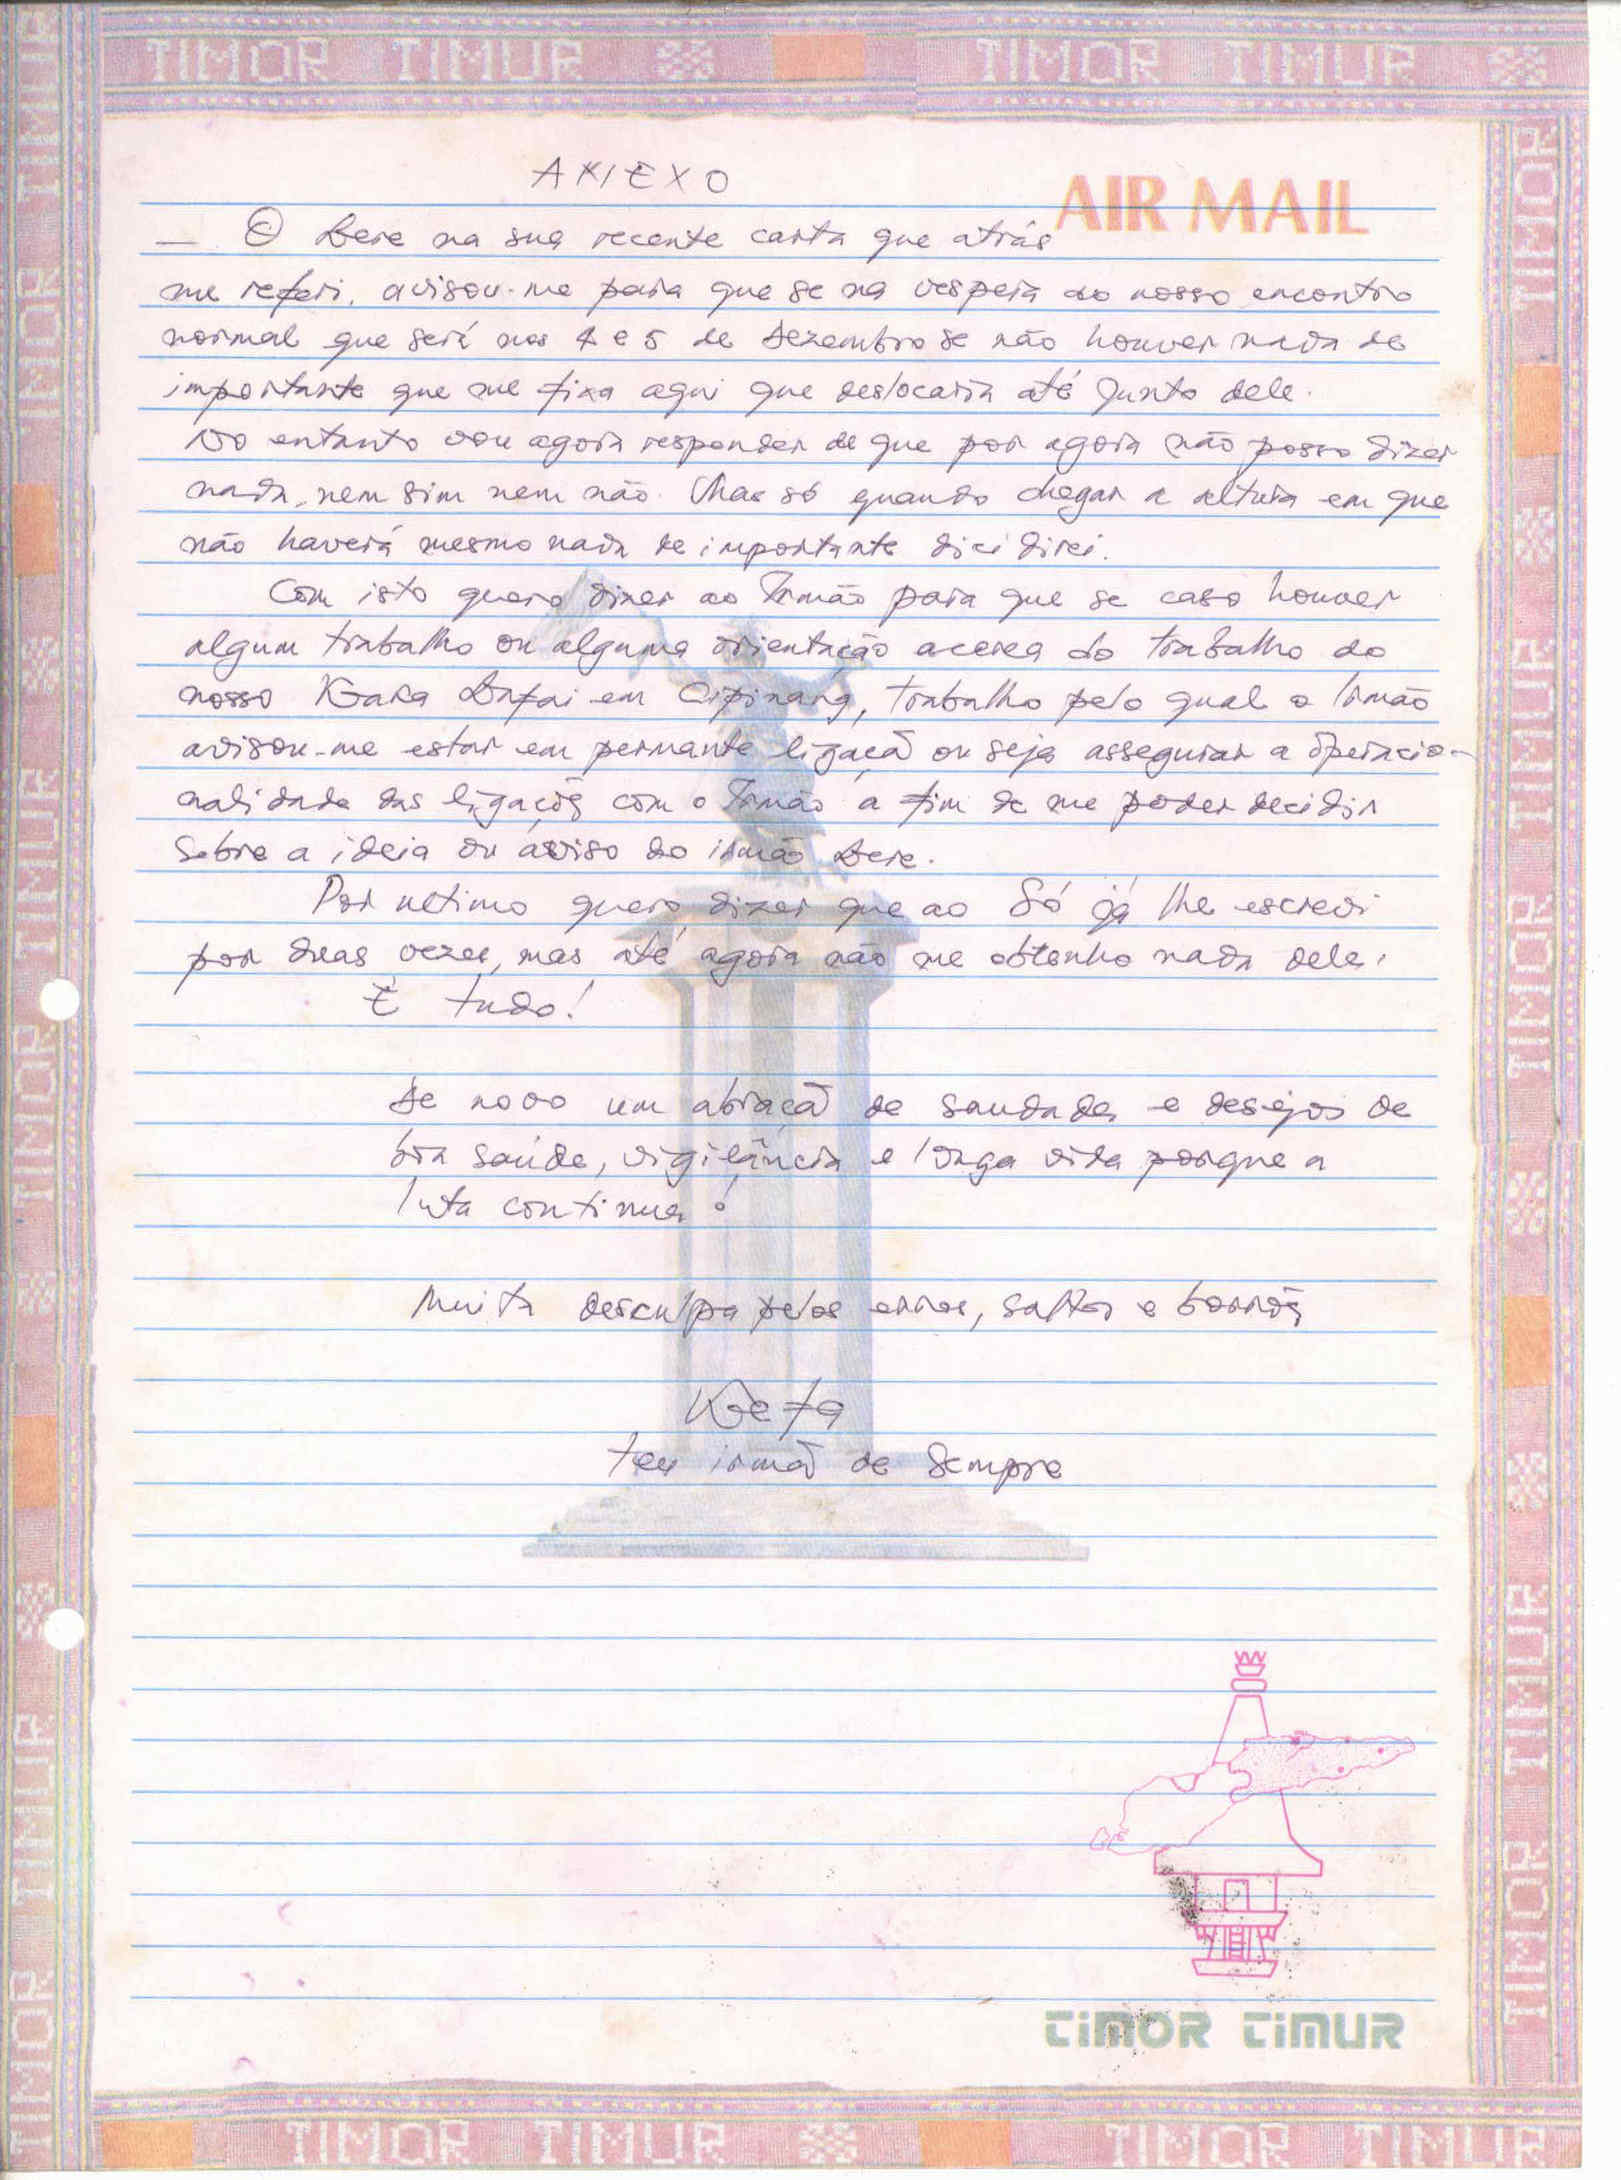 TIMOR TIMUR TIMOR TIMUR
ANEXO
AIR MAIL
— O Bere na sua recente carta que atrás
me referi, avisou-me para que se na vespera do nosso encontro
normal que será nos 4 e 5 de Dezembro se não houver nada de
importante que me fixa aqui que deslocaria até junto dele.
No entanto vou agora responder de que por agora não posso dizer
nada, nem sim nem não. Mas só quando chegar a altura em que
não haverá mesmo nada de importante dicidirei.
Com isto quero dizer ao Irmão para que se caso houver
algum trabalho ou alguma orientação acerca do trabalho do
nosso em Cipinang, trabalho pelo qual o Irmão
avisou-me estar em permante ligação ou seja assegurar a operacio-
nalidade das ligações com o Irmão a fim de me poder decidir
sobre a ideia ou aviso do irmão Bere.
Por ultimo quero dizer que ao Só já lhe escrevi
por duas vezes, mas até agora não me obtenho nada dele.
É tudo!
De novo um abração de saudades e desejos de
boa saúde, vigilância e longa vida porque a
luta continua!
Muita desculpa pelos erros, saltos e borrões
teu irmão de sempre
TIMOR TIMUR
TIMOR TIMUR TIMOR TIMUR